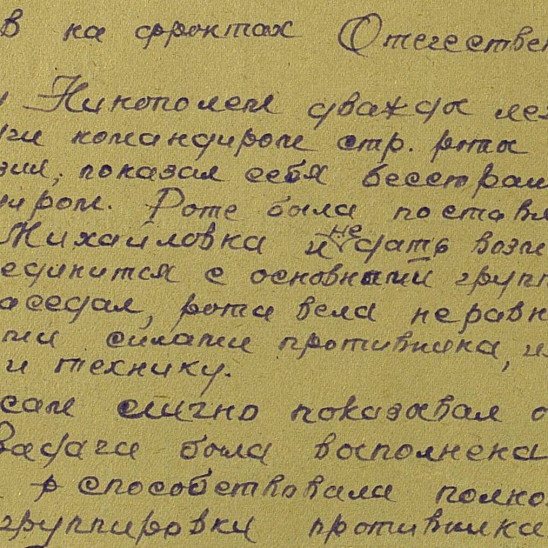 в на фронтах Отечествен
Никополем дважды ле
ги командиром стр. роты
зии, показал себя бесстраш
иром. Роте была поставл
Михайловка и не дать возм
единится с основными групп
аседал, рота вела неравн
ми силами противника, и
и технику.
сам лично показывал
Задача была выполнена
способствовала полно
группировки противника